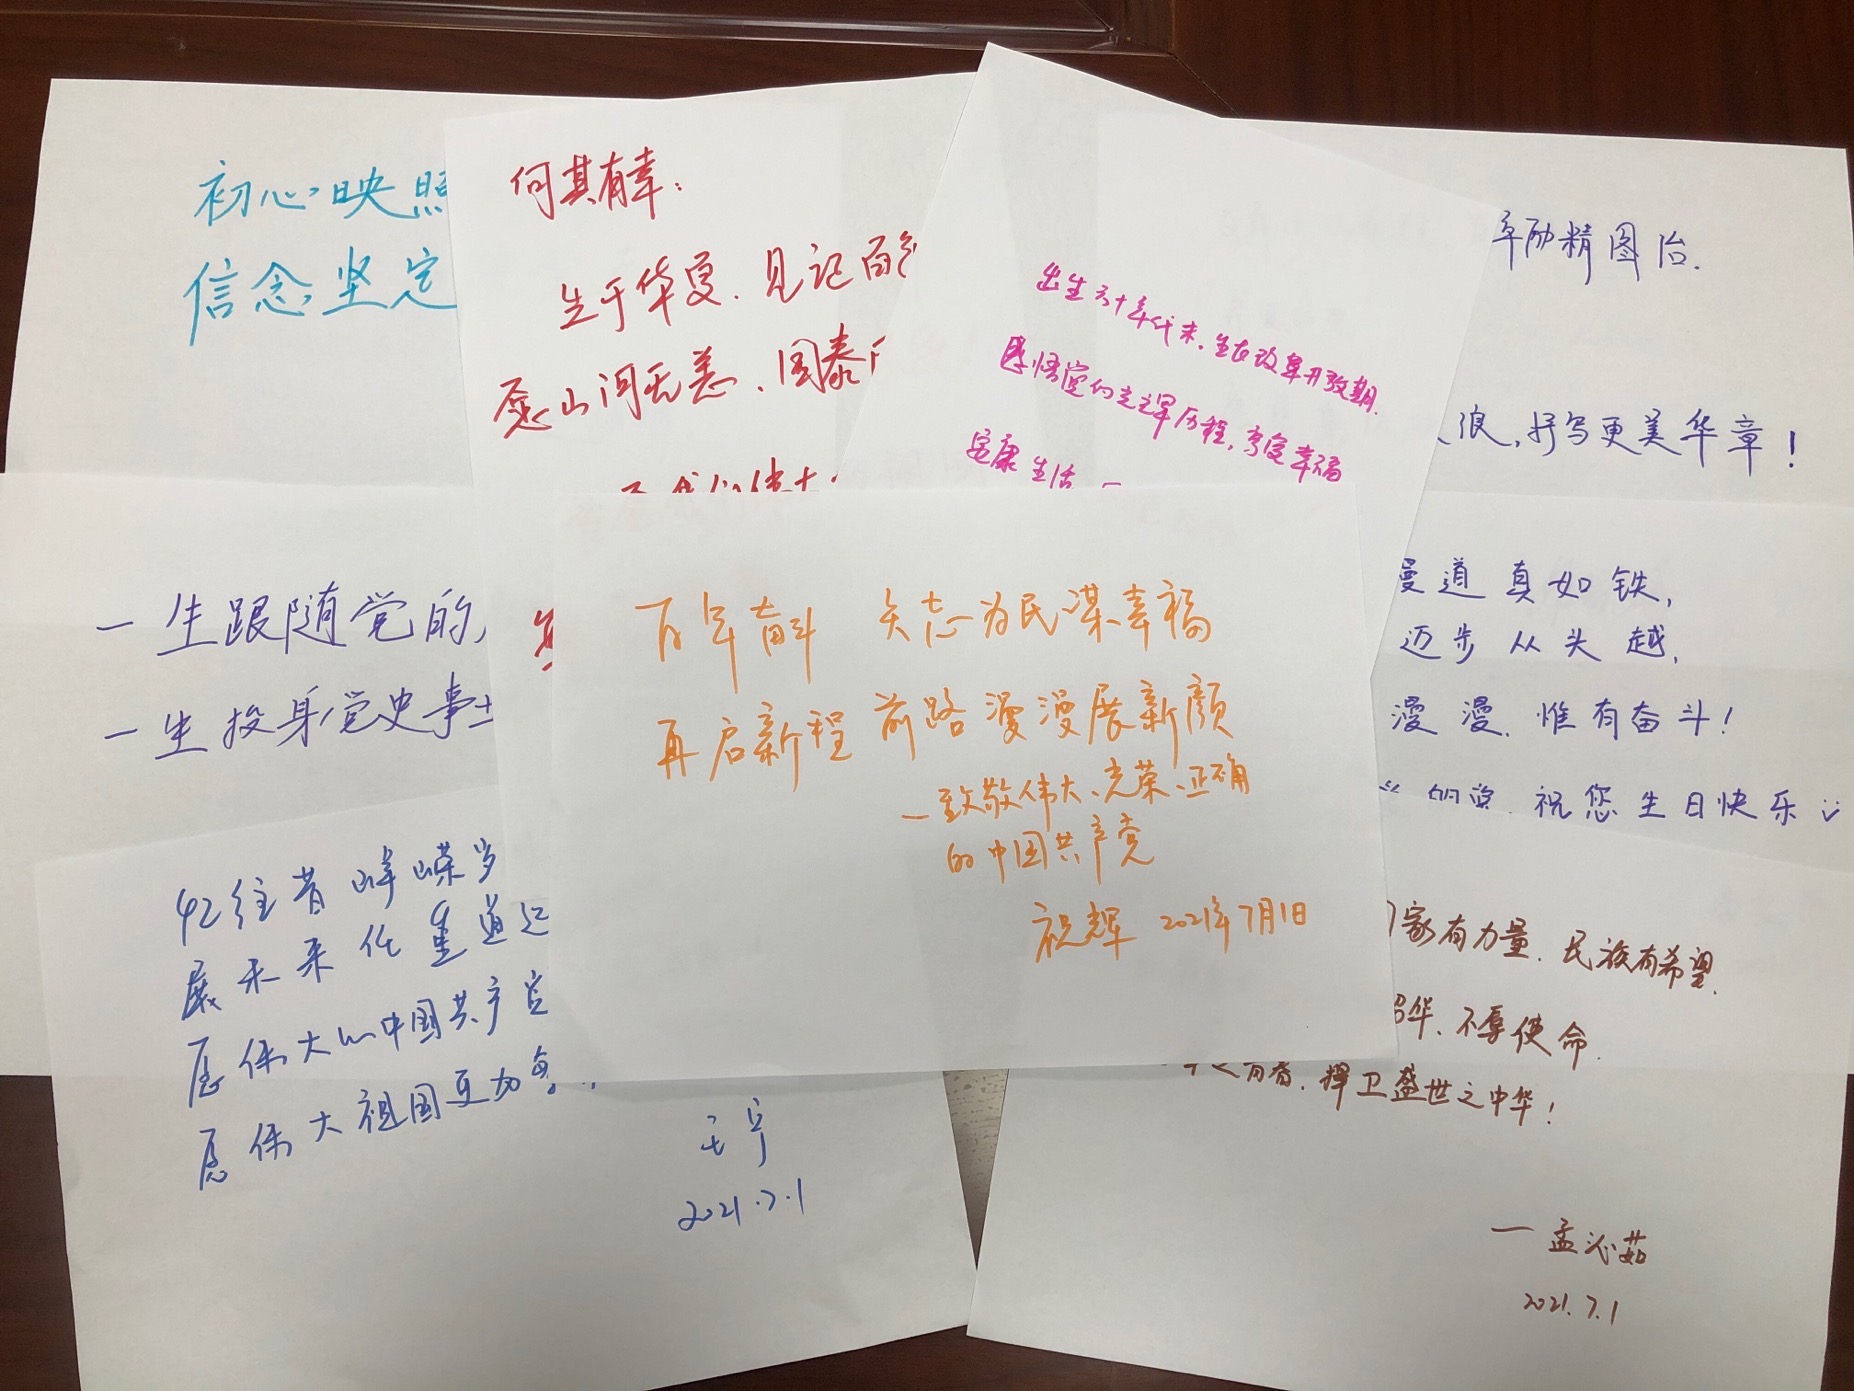 初心映照
信念坚定
何其有幸：
生于华夏、见记百
愿山河无恙、国泰
出生六十年代末，生在改革开放期.
感悟党的光辉历程，享受幸福
安康生活
年励精图治.
浪，抒写更美华章！
漫道真如铁，
迈步从头越，
漫漫，惟有奋斗！
的党，祝您生日快乐
一生跟随党的
一生投身党史事
百年奋斗 矢志为民谋幸福
再启新程 前路漫漫展新颜
—致敬伟大、光荣、正确
的中国共产党
祝辉 2021年7月1日
忆往昔峥嵘岁
展未来任重道远
愿伟大的中国共产党
愿伟大祖国更加
王宁
2021.7.1
家有力量，民族有希望，
韶华、不辱使命.
之青春，捍卫盛世之中华！
—孟沁茹
2021.7.1